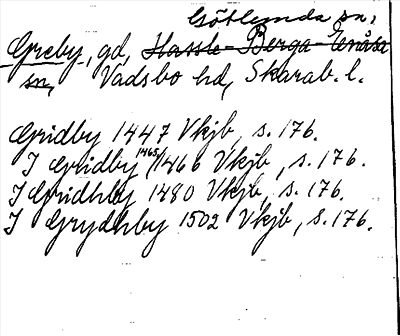 Götlunda sn,
Greby, gd, Hassle-Berga-Enåsa
sn, Vadsbo hd, Skarab. l.
Gridby 1447 Vkjb, s. 176.
I Gridby 1465/1466 Vkjb, s. 176.
I Gridhby 1480 Vkjb, s. 176.
I Grydhby 1502 Vkjb, s. 176.